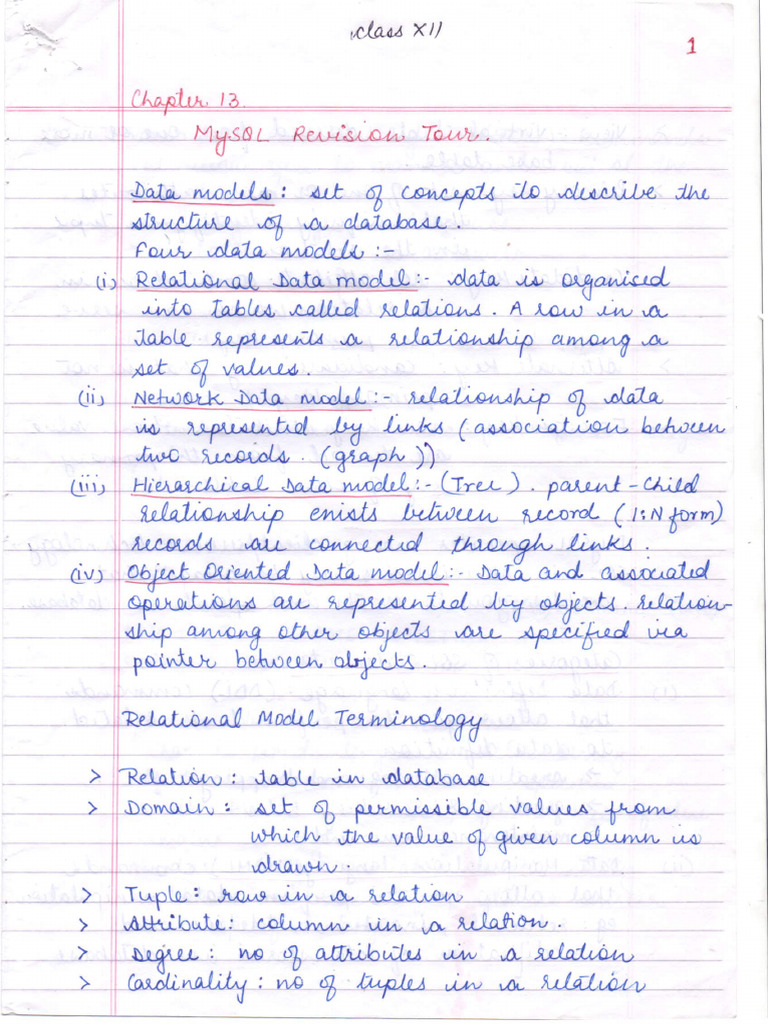 class XII
1
Chapter 13.
MySQL Revision Tour.
Data models : set of concepts to describe the
structure of a database.
Four data models :-
(i) Relational Data model :- data is organised
into tables called relations. A row in a
table represents a relationship among a
set of values.
(ii) Network Data model :- relationship of data
is represented by links (association between
two records. (graph))
(iii) Hierarchical Data model :- (Tree). parent-child
relationship exists between record (1:N form)
records are connected through links.
(iv) Object Oriented Data model :- Data and associated
operations are represented by objects. relation-
ship among other objects are specified via
pointer between objects.
Relational Model Terminology
> Relation : table in database
> Domain : set of permissible values from
which the value of given column is
drawn.
> Tuple : row in a relation
> Attribute : column in a relation.
> Degree : no of attributes in a relation
> Cardinality : no of tuples in a relation